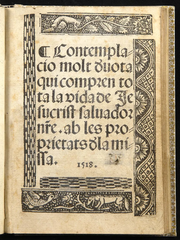 ¶ Contempla
cio molt duota
qui compren to
ta la vida de Je
sucrist saluador
nr̄e. ab les pro
prietats dla mi
ssa.
1518.